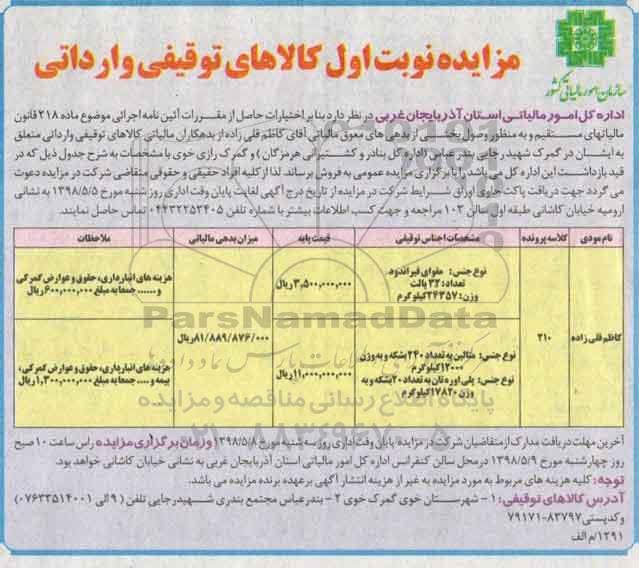 مزایده نوبت اول کالاهای توقیفی وارداتی
سازمان امور مالیاتی کشور
اداره کل امور مالیاتی استان آذربایجان غربی در نظر دارد بنابر اختیارات حاصل از مقررات آئین نامه اجرائی موضوع ماده ۲۱۸ قانون
مالیاتهای مستقیم و به منظور وصول بخشی از بدهی های معوق مالیاتی آقای کاظم قلی زاده از بدهکاران مالیاتی کالاهای توقیفی وارداتی متعلق
به ایشان در گمرک شهید رجایی بندرعباس (اداره کل بنادر و کشتیرانی هرمزگان) و گمرک رازی خوی با مشخصات به شرح جدول ذیل که در
قید بازداشت این اداره کل می باشد را با برگزاری مزایده عمومی به فروش برساند. لذا از کلیه افراد حقیقی و حقوقی متقاضی شرکت در مزایده دعوت
می گردد جهت دریافت پاکت حاوی اوراق شرایط شرکت در مزایده از تاریخ درج آگهی لغایت پایان وقت اداری روز شنبه مورخ ۱۳۹۸/۵/۵ به نشانی
ارومیه خیابان کاشانی طبقه اول سالن ۱۰۳ مراجعه و جهت کسب اطلاعات بیشتر با شماره تلفن ۰۴۴۳۲۲۵۳۴۰۵ تماس حاصل نمایند.
نام مودی کلاسه پرونده مشخصات اجناس توقیفی قیمت پایه میزان بدهی مالیاتی ملاحظات
کاظم قلی زاده ۲۱۰
نوع جنس: مقوای قیراندود
تعداد: ۳۲ پالت
وزن: ۲۴۳۵۷ کیلوگرم
۳,۵۰۰,۰۰۰,۰۰۰ ریال
هزینه های انبارداری، حقوق و عوارض گمرکی
و ...... جمعا به مبلغ ۶۰۰,۰۰۰,۰۰۰ ریال
۸۱/۸۸۹/۸۷۶/۰۰۰ ریال
نوع جنس: متالین به تعداد ۲۴۰ بشکه و به وزن
۱۲۰۰۰ کیلوگرم
نوع جنس: پلی اوره تان به تعداد ۲۰ بشکه و به
وزن ۱۷۸۲۰ کیلوگرم
۱۱,۰۰۰,۰۰۰,۰۰۰ ریال
هزینه های انبارداری، حقوق و عوارض گمرکی،
بیمه و .... جمعا به مبلغ ۱,۳۰۰,۰۰۰,۰۰۰ ریال
ParsNamadData
پایگاه اطلاع رسانی مناقصه و مزایده
۰۲۱-۸۸۳۴۹۶۷۰-۵
آخرین مهلت دریافت مدارک از متقاضیان شرکت در مزایده پایان وقت اداری روز سه شنبه مورخ ۱۳۹۸/۵/۸ و زمان برگزاری مزایده راس ساعت ۱۰ صبح
روز چهارشنبه مورخ ۱۳۹۸/۵/۹ در محل سالن کنفرانس اداره کل امور مالیاتی استان آذربایجان غربی به نشانی خیابان کاشانی خواهد بود.
توجه: کلیه هزینه های مربوط به مورد مزایده به غیر از هزینه انتشار آگهی برعهده برنده مزایده می باشد.
آدرس کالاهای توقیفی: ۱- شهرستان خوی گمرک خوی ۲- بندرعباس مجتمع بندری شهید رجایی تلفن (۹ الی ۰۷۶۳۳۵۱۴۰۰۱)
و کدپستی ۸۳۷۹۷-۷۹۱۷۱
۱۲۹۱/م الف